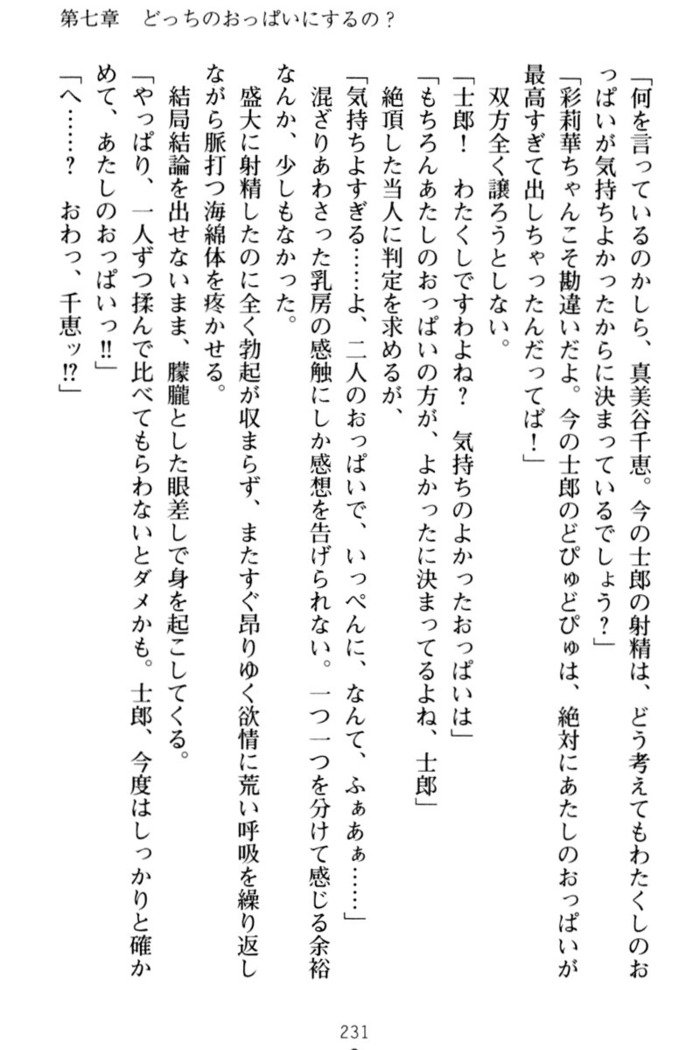 第七章　どっちのおっぱいにするの？
「何を言っているのかしら、真美谷千恵。今の士郎の射精は、どう考えてもわたくしのお
っぱいが気持ちよかったからに決まっているでしょう？」
「彩莉華ちゃんこそ勘違いだよ。今の士郎のどぴゅどぴゅは、絶対にあたしのおっぱいが
最高すぎて出しちゃったんだってば！」
双方全く譲ろうとしない。
「士郎！　わたくしですわよね？　気持ちのよかったおっぱいは」
「もちろんあたしのおっぱいの方が、よかったに決まってるよね、士郎」
絶頂した当人に判定を求めるが、
「気持ちよすぎる……よ、二人のおっぱいで、いっぺんに、なんて、ふぁあぁ……」
混ざりあわさった乳房の感触にしか感想を告げられない。一つ一つを分けて感じる余裕
なんか、少しもなかった。
盛大に射精したのに全く勃起が収まらず、またすぐ昂りゆく欲情に荒い呼吸を繰り返し
ながら脈打つ海綿体を疼かせる。
結局結論を出せないまま、朦朧とした眼差しで身を起こしてくる。
「やっぱり、一人ずつ揉んで比べてもらわないとダメかも。士郎、今度はしっかりと確か
めて、あたしのおっぱいっ‼」
「へ……？　おわっ、千恵ッ⁉」
231